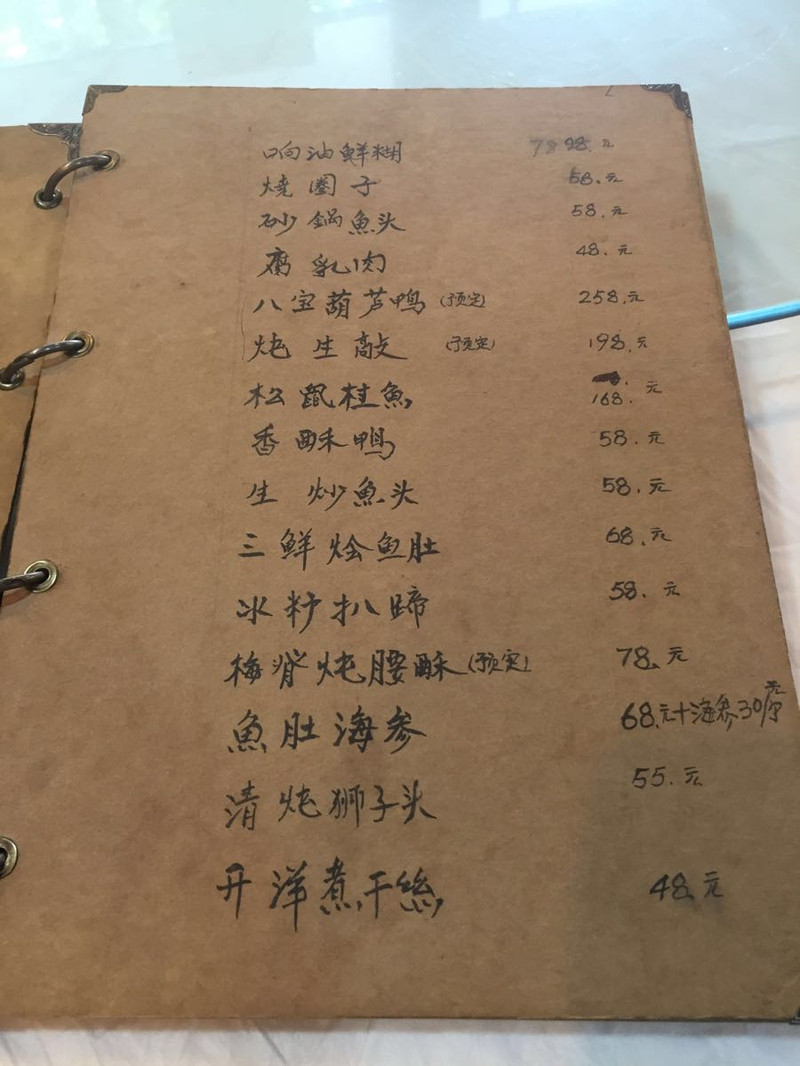 响油鲜糊 7898.元
烧圈子 58.元
砂鍋魚头 58.元
腐乳肉 48.元
八宝葫芦鸭(预定) 258.元
炖生敲 (预定) 198.元
松鼠桂魚 168.元
香酥鸭 58.元
生炒魚头 58.元
三鲜烩鱼肚 68.元
冰籽扒蹄 58.元
梅脊炖腰酥(预定) 78.元
魚肚海参 68.元+海参30元/序
清炖狮子头 55.元
开洋煮干絲 48.元